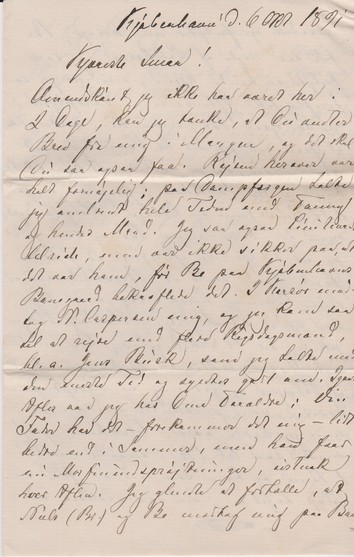 Kjøbenhavn d. 6 Okt 1891
Kjæreste Smaa!
Omendskønt jeg ikke har været her i
2 Dage, kan jeg tænke, at Du venter
Brev fra mig i Morgen, og det skal
Du saa ogsaa faa. Rejsen herover var
helt fornøjelig; paa Dampfærgen talte
jeg omtrent hele Tiden med Fanny
og hendes Mand. Jeg saa ogsaa
men var ikke sikker paa, at
det var ham, før Bo paa Kjøbenhavns
Banegaard bekræftede det. I Korsør mod-
tog N. Caspersen mig, og jeg kom saa
til at rejse med flere Rigsdagsmænd,
bl. a. Jens Busk, som jeg talte med
den meste Tid og syntes godt om. Igaar
Aftes var jeg hos Onkel
Fader har det – forekommer det mig – lidt
bedre end i Sommer, men han faar
nu Morfinindsprøjtninger, vistnok
hver Aften. Jeg glemte at fortælle, at
Niels (Br) og Bo modtog mig paa Ban